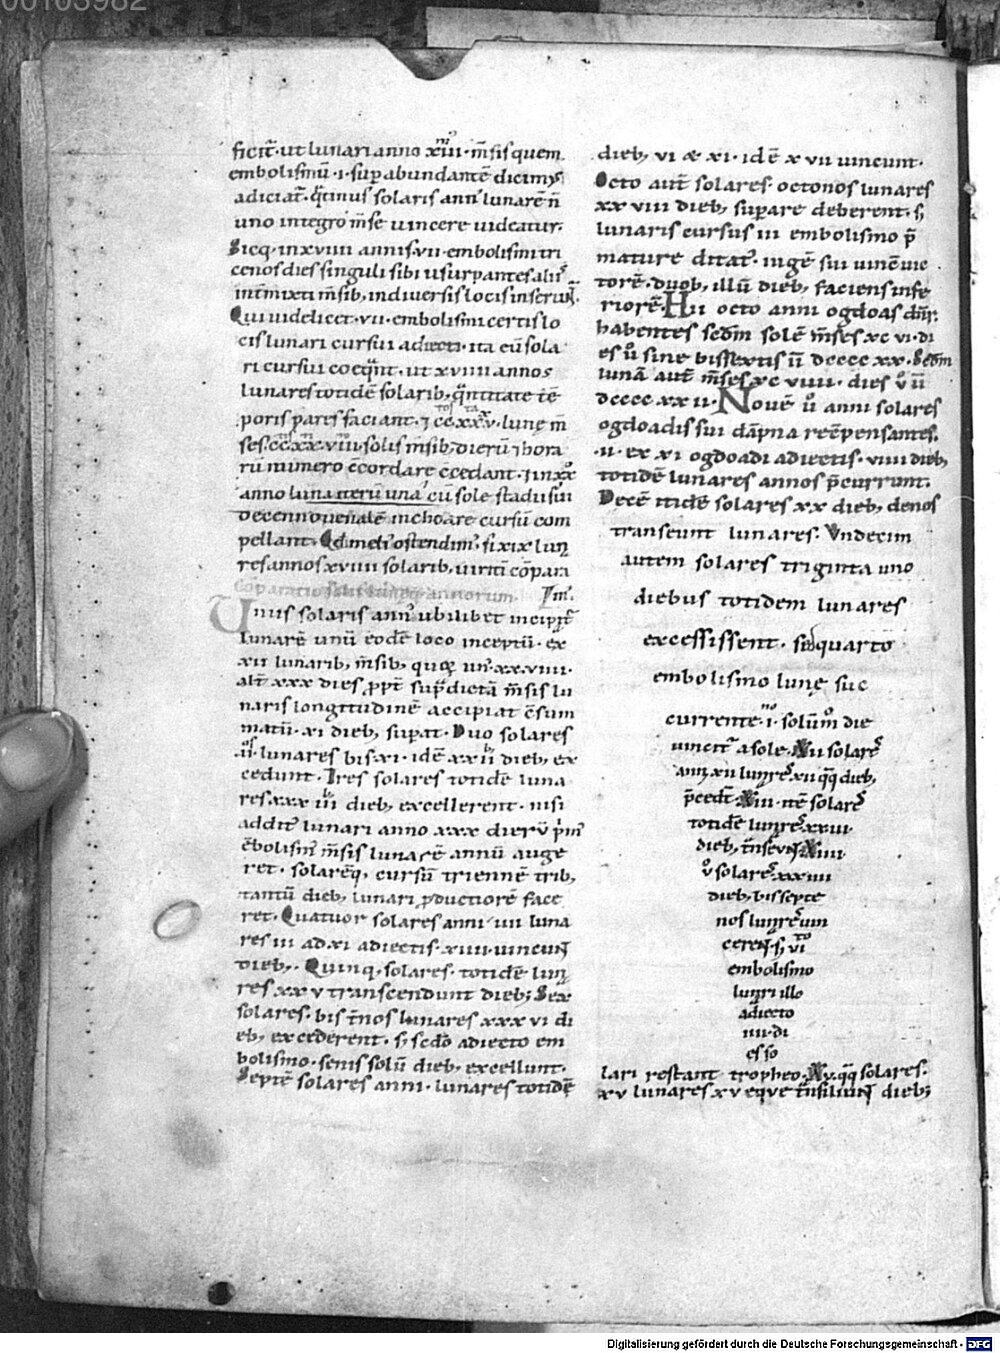 00103982
ficit̄· ut lunari anno xiii· m̄sis quem
embolismū ·i· sup̄abundantē dicimus
adiciat̄· q̄tinus solaris ann' lunarē n̄
uno integro m̄se uincere uideatur·
Sicq· in xviiii annis ·vii· embolismi tri
cenos dies singuli sibi usurpantes aliis
int̄mixti m̄sib; in diuersis locis inserunt̄·
Qui uidelicet ·vii· embolismi certis lo
cis lunari cursui adiecti· ita cū sola
ri cursui coequnt̄· ut xviiii annos
lunares totidē solarib; q̄ntitate tē
poris pares faciant· ⁊ ccxxxv· lunę m̄
ses· ccxxviii· solis m̄sib; dierū ⁊ hora
rū numero ccordare c̄cedant· ⁊ in xx°
anno luna iterū una cū sole stadii sui
decennouenalē inchoare cursū com
pellant· Qd melī ostendim̄· si xix lun
res annos xviiii solarib; uiritī cōpara
Cōparatio solis lunęq; annorum· im̄·
Unus solaris ann' ubilibet incipit̄
lunarē unū eodē loco inceptū· ex
xii lunarib; m̄sib; quoꝝ un' xxviiii·
alt̄ xxx dies ꝓpt̄ sup̄dictā m̄sis lu
naris longitudinē accipiat c̄sum
matū· xi dieb; sup̄at· Duo solares
·ii· lunares bis·xi· idē xxii dieb; ex
cedunt· Tres solares totidē luna
res xxxiii dieb; excellerent· nisi
addit̄ lunari anno xxx dierū p̄m'
ēbolism' m̄sis lunarē annū auge
ret· solarēq; cursū triennē trib;
tantū dieb; lunari ꝓductiorē face
ret· Quatuor solares anni ·iiii luna
res iii ad xi adiectis· xiiii· uincunt
dieb;· Quinq; solares· totidē lun
res xxv transcendunt dieb; Sex
solares· bis t̄nos lunares xxxvi di
eb; excederent· s; sc̄do adiecto em
bolismo· senis solū dieb; excellunt·
Septē solares anni· lunares totidē
dieb; vi & xi· idē xvii uincunt·
Octo aut̄ solares octonos lunares
xxviii dieb; sup̄are deberent· s;
lunaris cursus iii embolismo p̄
mature ditat̄· ingē sui uinēuic
torē· duob; illū dieb; faciens infe
riorē· Hii octo anni ogdoas dn̄r·
habentes sedm̄ solē m̄ses xcvi· di
es ū sine bissextis ii dccccxx· Sedm
lunā aut̄ m̄ses xcviiii· dies ū ii
dccccxxii· Nouē ū anni solares
ogdoadis sui dāpna reēpensantes·
·ii· ex xi ogdoadi adiectis· viiii dieb;
totidē lunares annos p̄currunt·
Decē itidē solares xx dieb; denos
transeunt lunares· Undecim
autem solares triginta uno
diebus totidem lunares
excessissent· sed quarto
embolismo lunę suc
currente· i· solūm die
uincit̄ a sole· Xii solares
ann̄ xii lunr̄es xii qq; dieb;
p̄cedt̄· Xiii· itē solares
totidē lunr̄es xxiii·
dieb; t̄nseunt̄ Xiiii·
ū solares xxxiiii
dieb; bis septe
nos lunr̄es uin
cerent̄ s; vi
embolismo
lunr̄i illo
adiecto
iiii· di
es so
lari restant tropheo· Xv qq; solares·
xv lunares xv eque t̄nsiliunt̄ dieb;
Digitalisierung gefördert durch die Deutsche Forschungsgemeinschaft - DFG